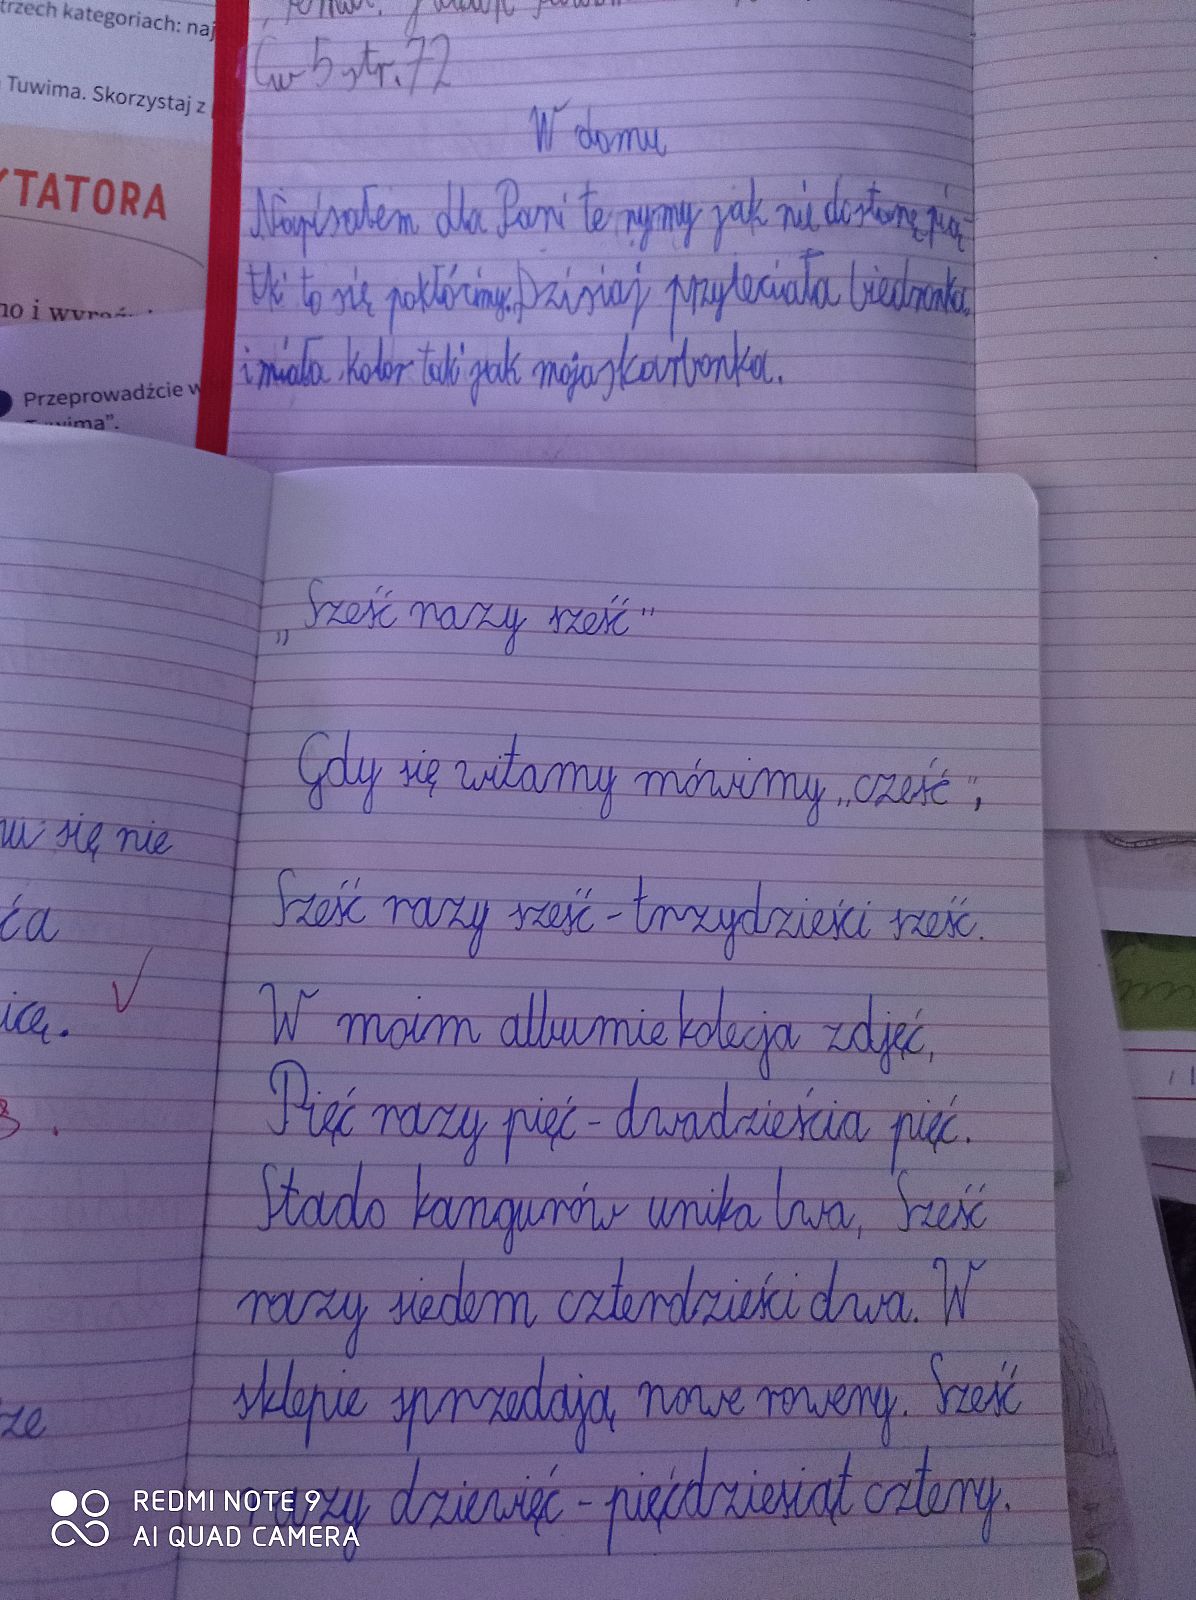 trzech kategoriach: naj
Tuwima. Skorzystaj z
YTATORA
no i wyraź
Przeprowadźcie w
Tuwima”.
Ćw 5 str. 72
W domu
Napisałem dla Pani te rymy jak nie dostanę pią-
tki to się pokłócimy. Dzisiaj przyleciała biedronka,
i miała kolor taki jak moja skarbonka.
„Sześć razy sześć”
Gdy się witamy mówimy „cześć”,
Sześć razy sześć - trzydzieści sześć.
W moim albumie kolecja zdjęć,
Pięć razy pięć - dwadzieścia pięć.
Stado kangurów unika lwa, Sześć
razy siedem czterdzieści dwa. W
sklepie sprzedają nowe rowery. Sześć
razy dziewięć - pięćdziesiąt cztery.
się nie
ća
icą.
ze
REDMI NOTE 9
AI QUAD CAMERA